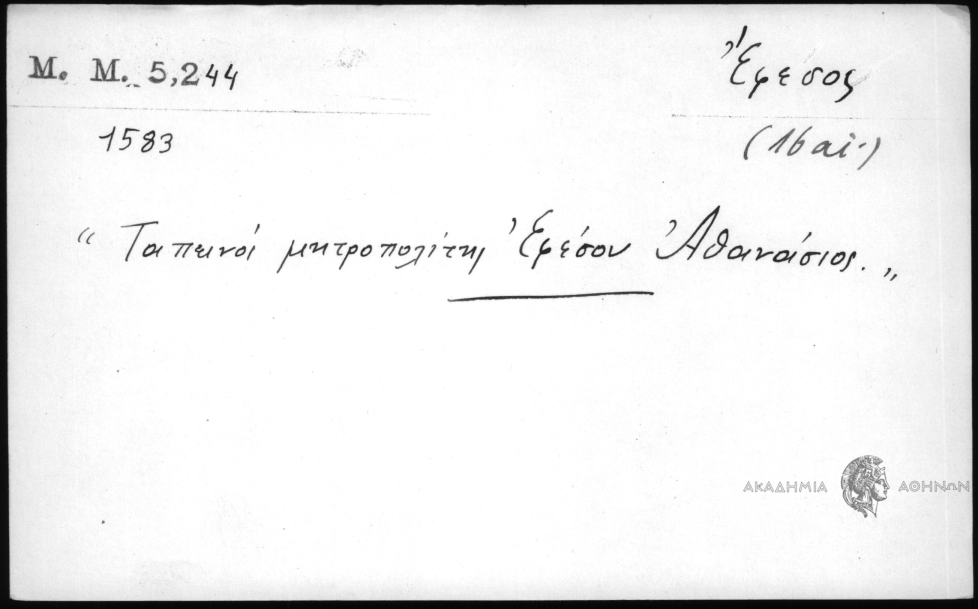 M. M. 5,244
Ἔφεσος
1583
(16 αἰ.)
“ Ταπεινός μητροπολίτης Ἐφέσου Ἀθανάσιος. „
ΑΚΑΔΗΜΙΑ ΑΘΗΝΩΝ